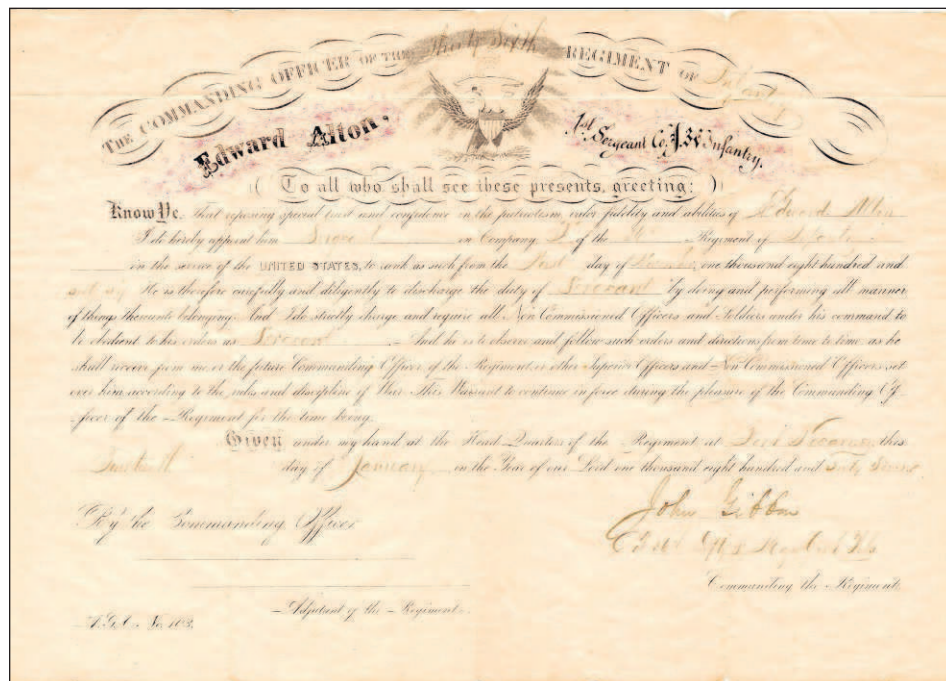 THE COMMANDING OFFICER OF THE Thirty Sixth REGIMENT OF Infantry
Edward Alton. 1st Sergeant Co. 36 Infantry.
To all who shall see these presents, greeting:
Know Ye, That reposing special trust and confidence in the patriotism, valor, fidelity and abilities of Edward Alton
I do hereby appoint him Sergeant in Company of the 36th Regiment of Infantry
in the service of the UNITED STATES, to rank as such from the First day of one thousand eight hundred and
sixty six He is therefore carefully and diligently to discharge the duty of Sergeant by doing and performing all manner
of things thereunto belonging. And I do strictly charge and require all Non Commissioned Officers and Soldiers under his command to
be obedient to his orders as Sergeant And he is to observe and follow such orders and directions from time to time, as he
shall receive from me, or the future Commanding Officer of the Regiment, or other Superior Officers and Non Commissioned Officers set
over him, according to the rules and discipline of War. This Warrant to continue in force during the pleasure of the Commanding Of-
ficer of the Regiment for the time being.
Given under my hand at the Head Quarters of the Regiment at Fort this
day of January in the Year of our Lord one thousand eight hundred and Sixty Seven
John Gibbon
By the Commanding Officer
Commanding the Regiment
Adjutant of the Regiment.
A.G.O. No. 103.